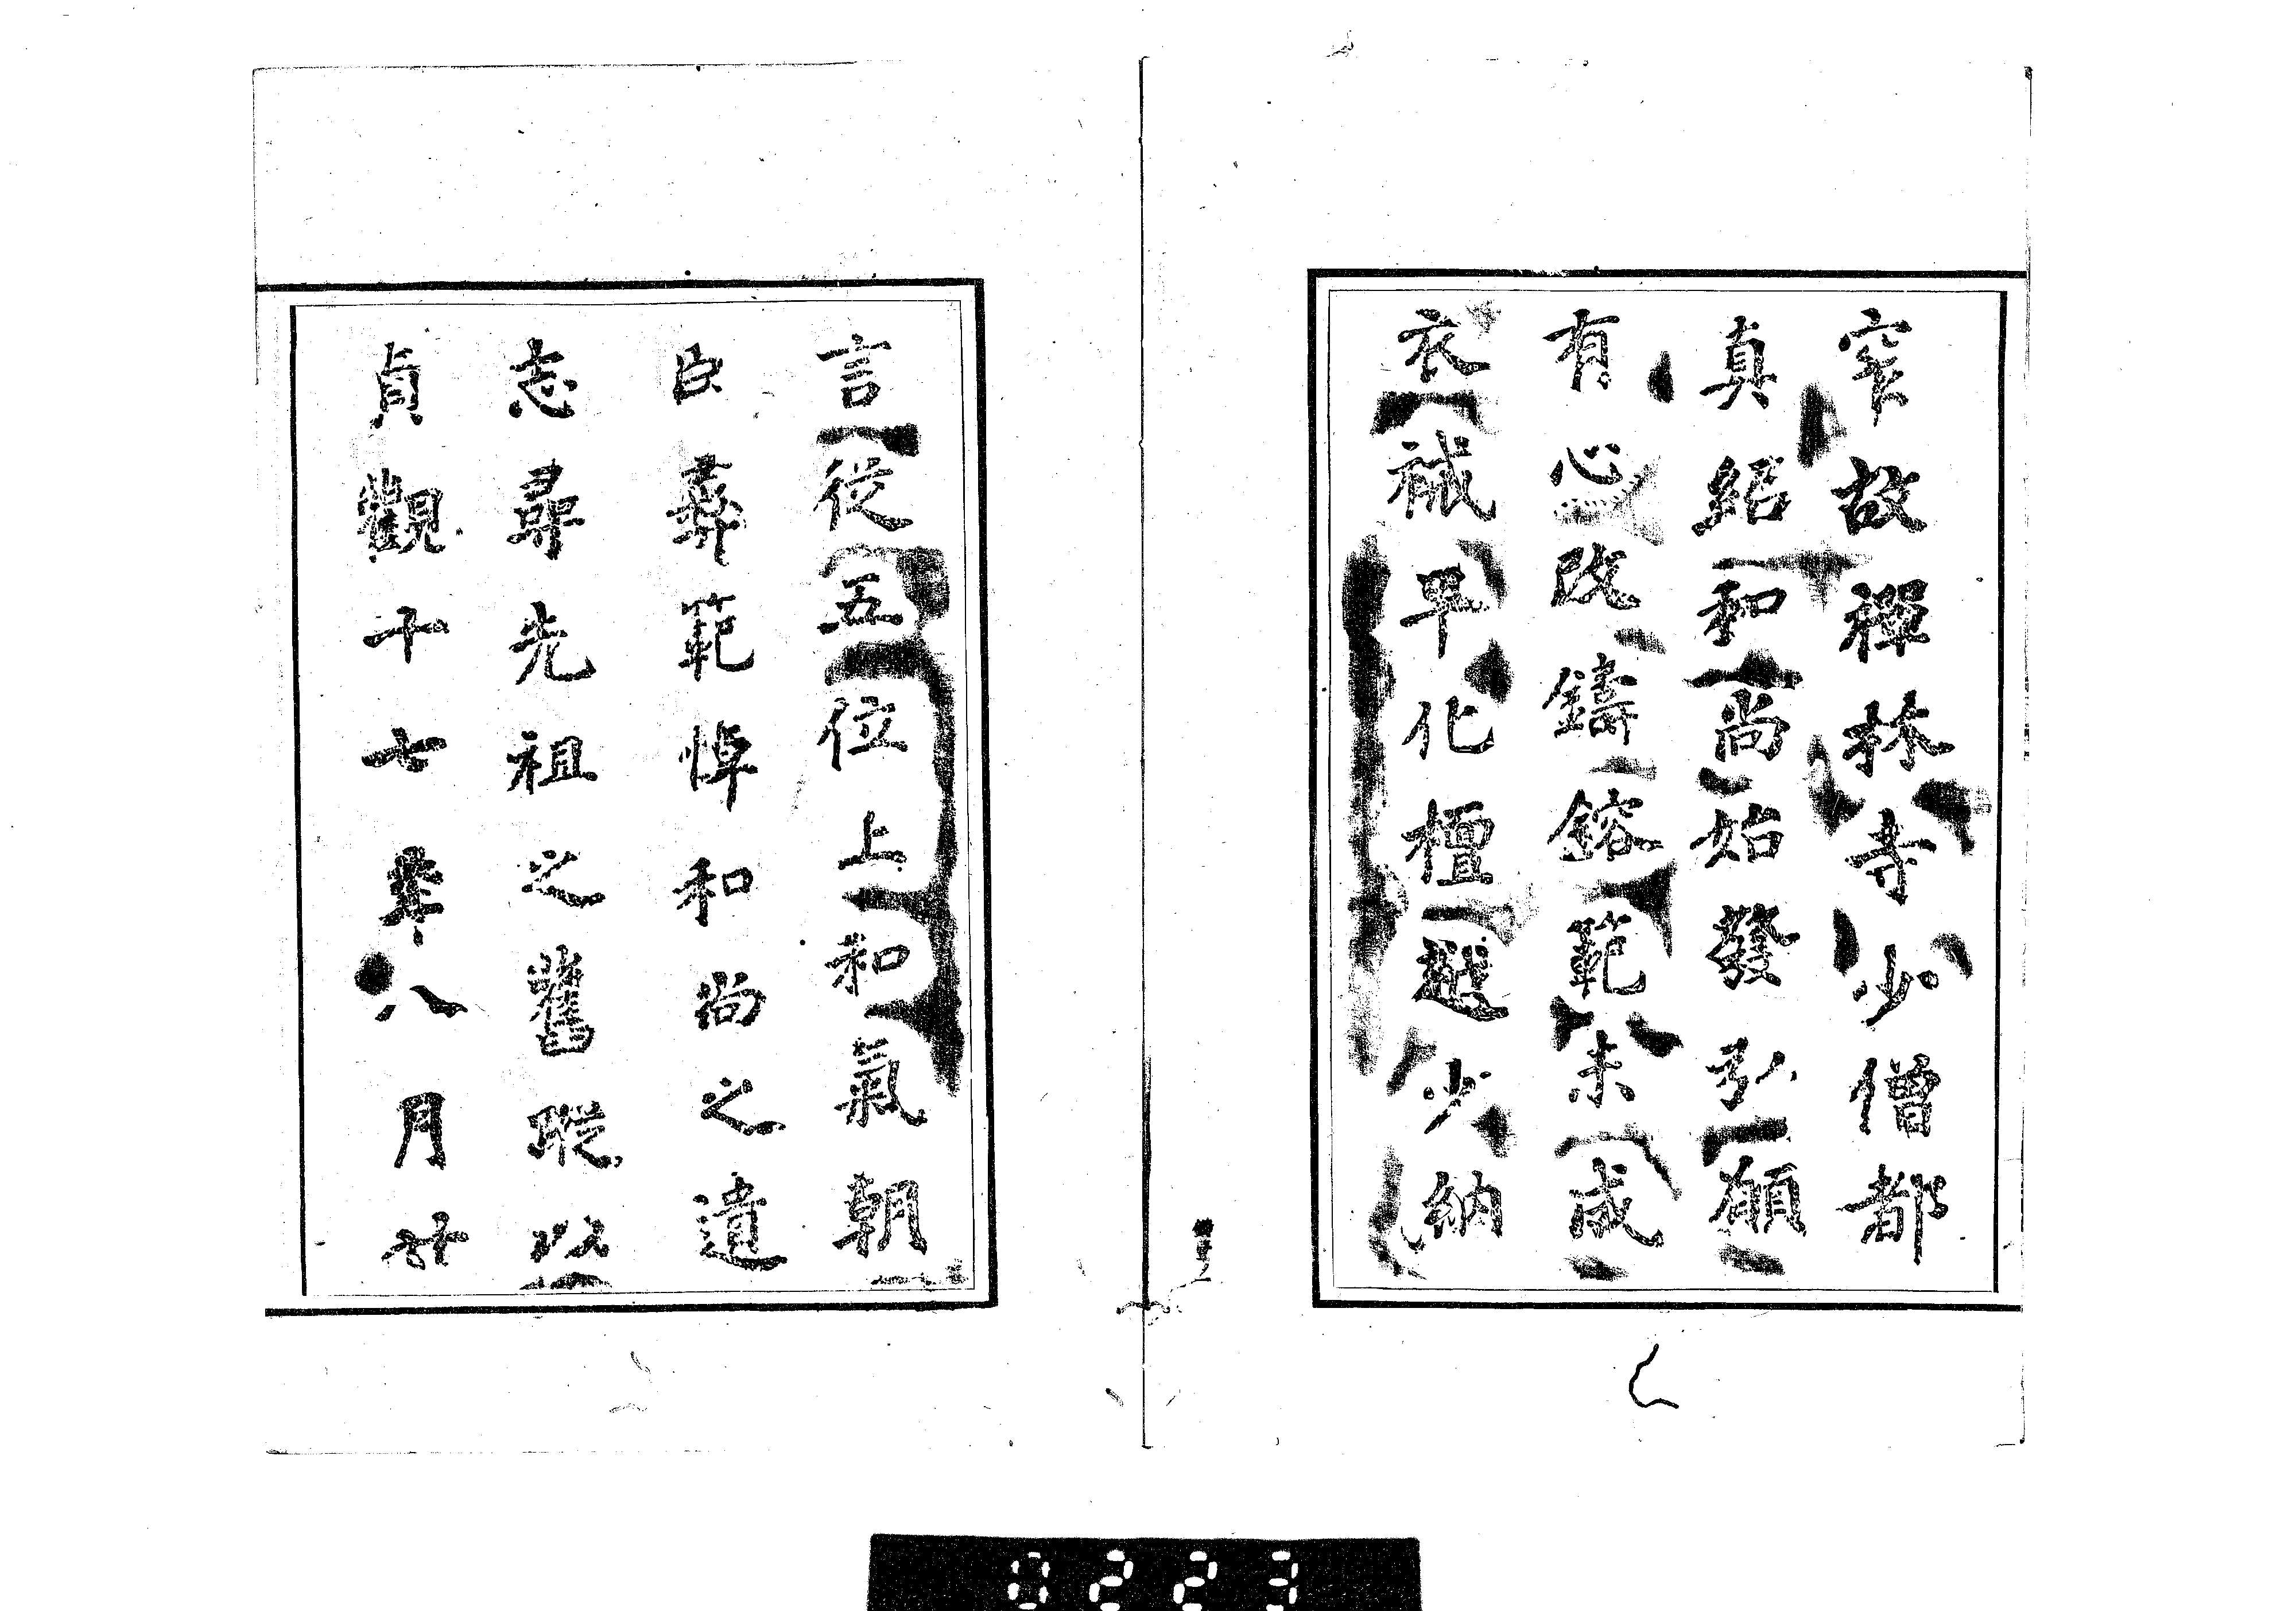 窄故禪林寺少僧都
真紹和尚始發弘願
有心改鑄鎔範未成
衣祴早化檀越少納
言從五位上和氣朝
臣彝範悼和尚之遺
志尋先祖之舊蹤以
貞觀十七年八月廿
0223